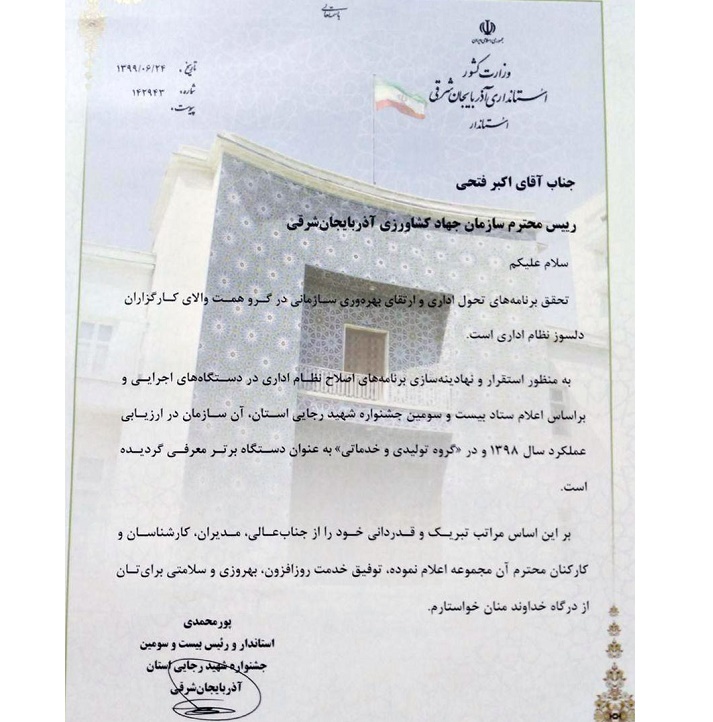 باسمه تعالی
جمهوری اسلامی ایران
وزارت کشور
استانداری آذربایجان شرقی
استاندار
تاریخ: ۱۳۹۹/۰۶/۲۴
شماره: ۱۴۲۹۴۳
پیوست:
جناب آقای اکبر فتحی
رییس محترم سازمان جهاد کشاورزی آذربایجان‌شرقی
سلام علیکم
تحقق برنامه‌های تحول اداری و ارتقای بهره‌وری سازمانی در گرو همت والای کارگزاران
دلسوز نظام اداری است.
به منظور استقرار و نهادینه‌سازی برنامه‌های اصلاح نظام اداری در دستگاه‌های اجرایی و
براساس اعلام ستاد بیست و سومین جشنواره شهید رجایی استان، آن سازمان در ارزیابی
عملکرد سال ۱۳۹۸ و در «گروه تولیدی و خدماتی» به عنوان دستگاه برتر معرفی گردیده
است.
بر این اساس مراتب تبریک و قدردانی خود را از جناب‌عالی، مدیران، کارشناسان و
کارکنان محترم آن مجموعه اعلام نموده، توفیق خدمت روزافزون، بهروزی و سلامتی برای‌تان
از درگاه خداوند منان خواستارم.
پورمحمدی
استاندار و رئیس بیست و سومین
جشنواره شهید رجایی استان
آذربایجان‌شرقی